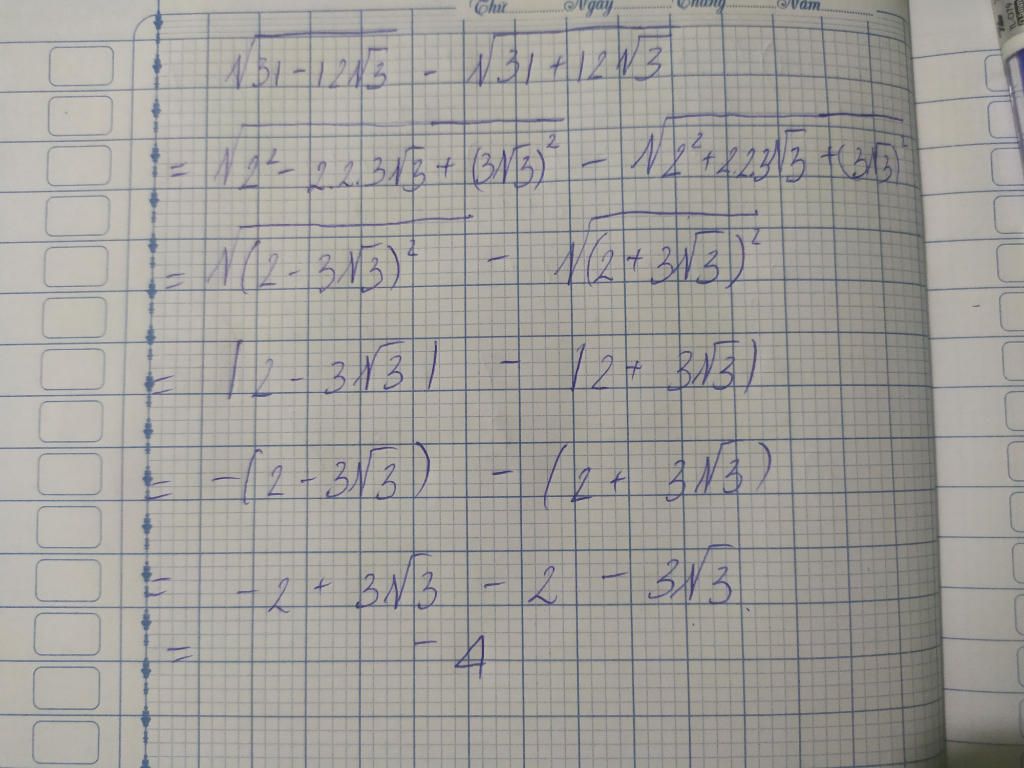 Thứ Ngày Tháng Năm
√(31 - 12√3) - √(31 + 12√3)
= √(2² - 2.2.3√3 + (3√3)²) - √(2² + 2.2.3√3 + (3√3)²)
= √((2 - 3√3)²) - √((2 + 3√3)²)
= |2 - 3√3| - |2 + 3√3|
= -(2 - 3√3) - (2 + 3√3)
= -2 + 3√3 - 2 - 3√3.
= -4